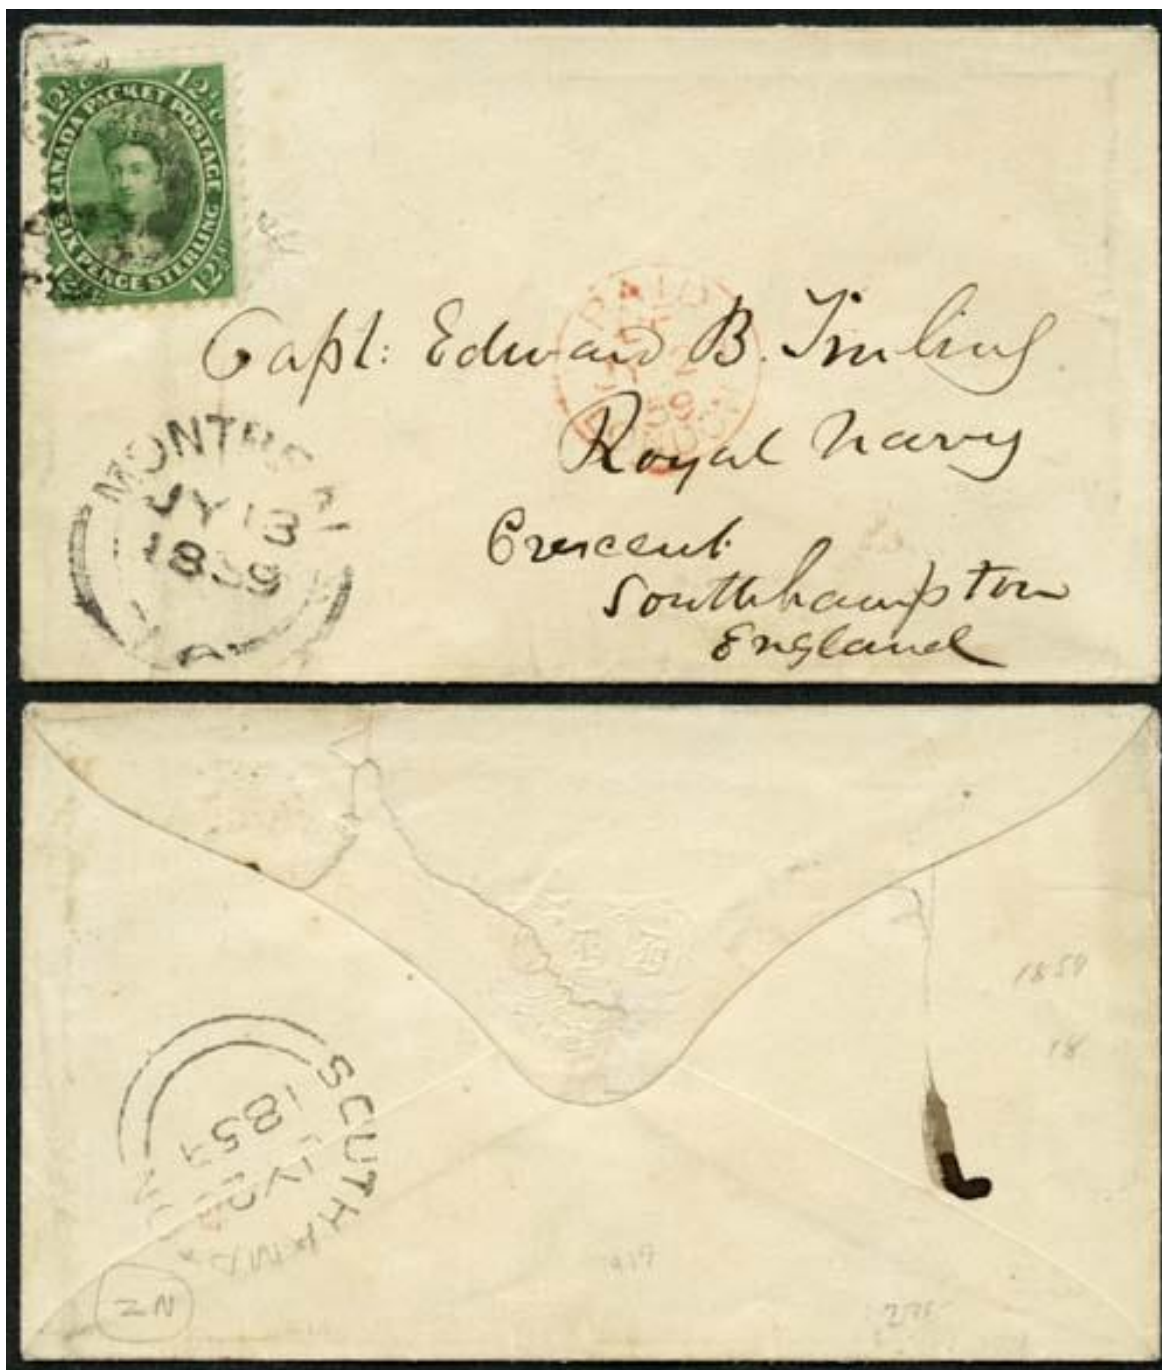 12½c 12½c
CANADA PACKET POSTAGE
SIX PENCE STERLING
12½c 12½c
PAID
59
Capt: Edward B. Tinling
Royal Navy
Crescent
Southhampton
England
MONTREAL
JY 13
1859
1859
18
SOUTHAMP
1859